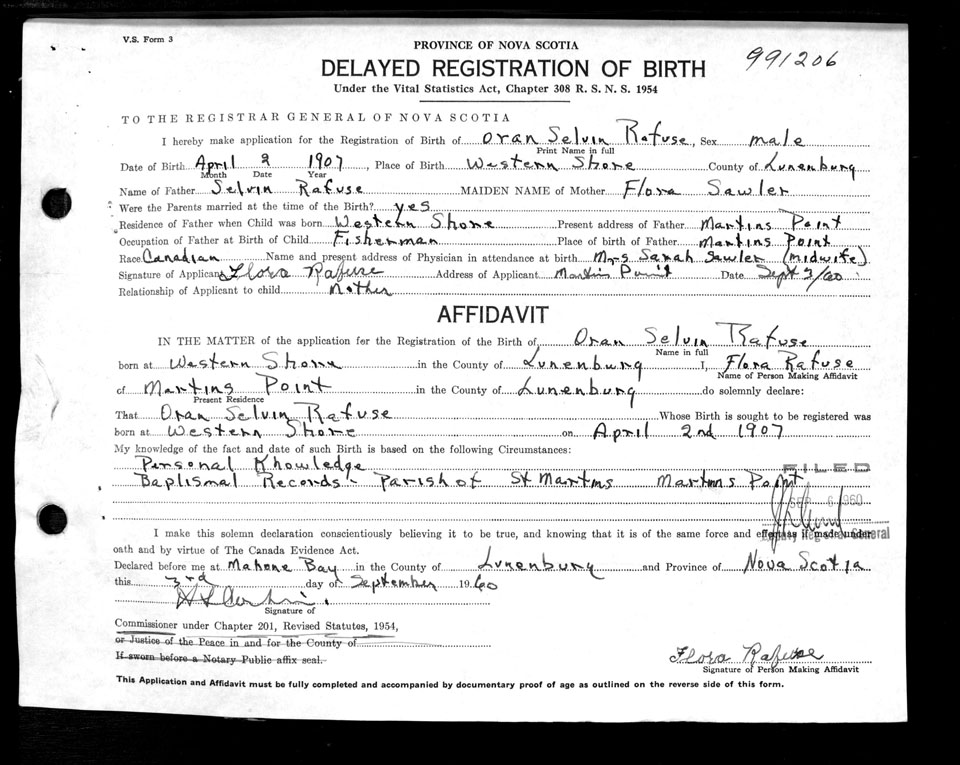 V.S. Form 3
PROVINCE OF NOVA SCOTIA
991206
DELAYED REGISTRATION OF BIRTH
Under the Vital Statistics Act, Chapter 308 R. S. N. S. 1954
TO THE REGISTRAR GENERAL OF NOVA SCOTIA
I hereby make application for the Registration of Birth of Oran Selvin Rafuse, Sex male
Print Name in full
Date of Birth April 2 1907, Place of Birth Western Shore County of Lunenburg
Month Date Year
Name of Father Selvin Rafuse MAIDEN NAME of Mother Flora Sawler
Were the Parents married at the time of the Birth? yes
Residence of Father when Child was born Western Shore Present address of Father Martins Point
Occupation of Father at Birth of Child Fisherman Place of birth of Father Martins Point
Race Canadian Name and present address of Physician in attendance at birth Mrs Sarah Sawler (midwife)
Signature of Applicant Flora Rafuse Address of Applicant Martin Point Date Sept 3/60
Relationship of Applicant to child Mother
AFFIDAVIT
IN THE MATTER of the application for the Registration of the Birth of Oran Selvin Rafuse
Name in full
born at Western Shore in the County of Lunenburg I, Flora Rafuse
Name of Person Making Affidavit
of Martins Point in the County of Lunenburg do solemnly declare:
Present Residence
That Oran Selvin Rafuse Whose Birth is sought to be registered was
born at Western Shore on April 2nd 1907
My knowledge of the fact and date of such Birth is based on the following Circumstances:
Personal Knowledge
FILED
Baptismal Records - Parish of St Martins Martins Point
SEP 6 1960
Deputy Registrar General
I make this solemn declaration conscientiously believing it to be true, and knowing that it is of the same force and effect as if made under
oath and by virtue of The Canada Evidence Act.
Declared before me at Mahone Bay in the County of Lunenburg and Province of Nova Scotia
this 3rd day of September 1960
Signature of
Commissioner under Chapter 201, Revised Statutes, 1954,
or Justice of the Peace in and for the County of
If sworn before a Notary Public affix seal.
Flora Rafuse
Signature of Person Making Affidavit
This Application and Affidavit must be fully completed and accompanied by documentary proof of age as outlined on the reverse side of this form.